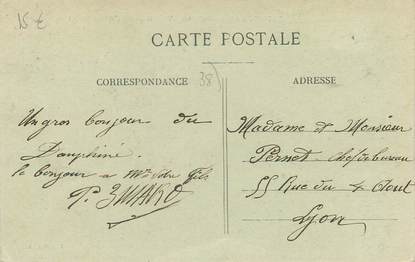 15 €
CARTE POSTALE
CORRESPONDANCE
38
ADRESSE
Un gros bonjour du
Dauphiné.
le bonjour a Mr Votre Fils
P.
Madame et Monsieur
Pernet Chef de bureau
55 Rue du 4 Aout
Lyon